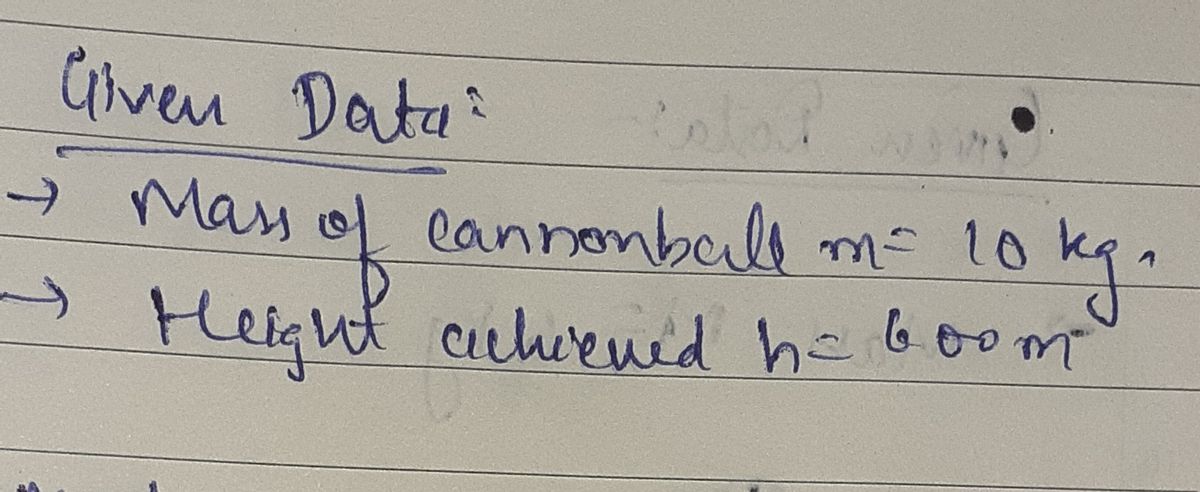 Given Data:
→ Mass of cannonball m= 10 kg.
→ Height achieved h= 600m